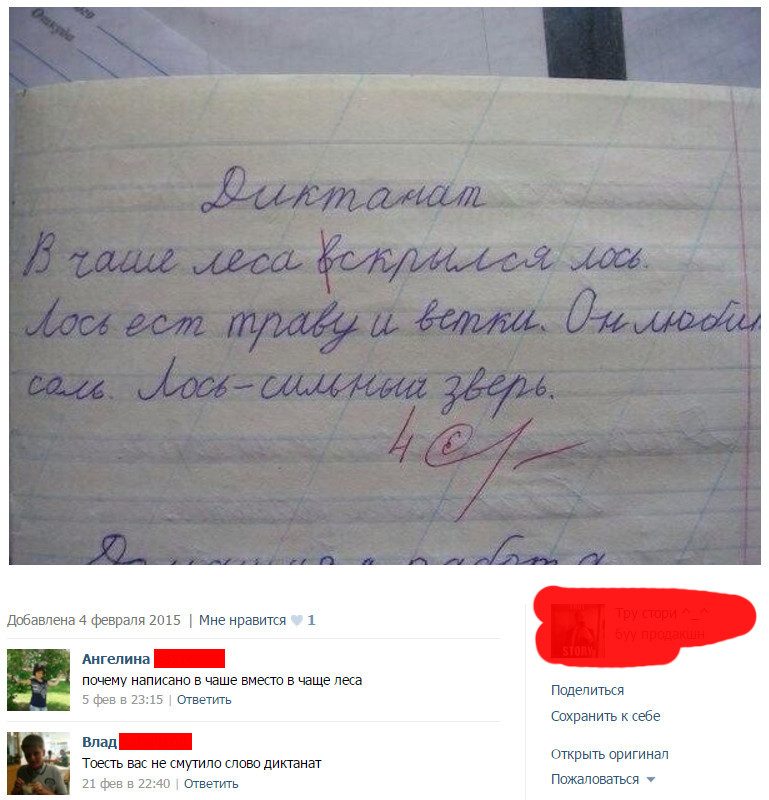 Диктанат
В чаше леса вскрылся лось.
Лось ест траву и ветки. Он любит
соль. Лось-сильный зверь.
4
Домашняя работа
Добавлена 4 февраля 2015 | Мне нравится 1
Тру стори ^_^
буу продакшн
STORY
Ангелина
почему написано в чаше вместо в чаще леса
5 фев в 23:15 | Ответить
Поделиться
Сохранить к себе
Влад
Тоесть вас не смутило слово диктанат
21 фев в 22:40 | Ответить
Открыть оригинал
Пожаловаться